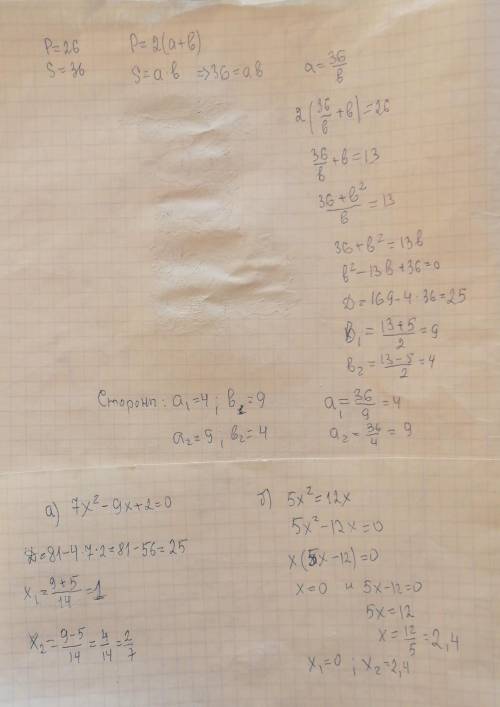 P=26
S=36
P=2(a+b)
S=a·b =>36=ab
a=36/b
2(36/b+b)=26
36/b+b=13
(36+b²)/b=13
36+b²=13b
b²-13b+36=0
D=169-4·36=25
b₁=(13+5)/2=9
b₂=(13-5)/2=4
a₁=36/9=4
a₂=36/4=9
Стороны: a₁=4; b₁=9
a₂=9; b₂=4
a) 7x²-9x+2=0
D=81-4·7·2=81-56=25
x₁=(9+5)/14=1
x₂=(9-5)/14=4/14=2/7
б) 5x²=12x
5x²-12x=0
x(5x-12)=0
x=0 и 5x-12=0
5x=12
x=12/5=2,4
x₁=0; x₂=2,4